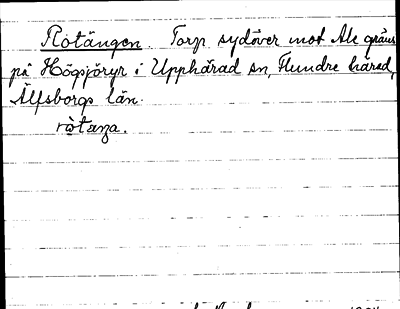 Rotängen. Torp sydöver mot Ale gräns
på Högsjöryr i Upphärad sn, Flundre härad,
Älfsborgs län.
ròtæŋa.